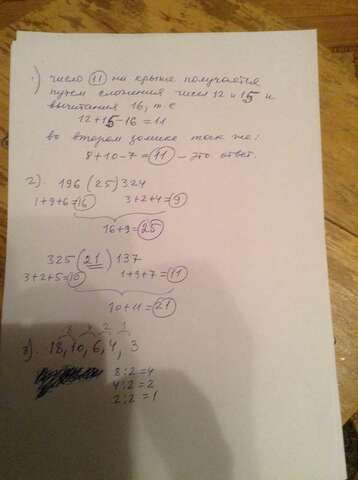 1) число 11 на крыше получается
путем сложения чисел 12 и 15 и
вычитания 16, т.е
12+15-16=11
во втором домике так же:
8+10-7=11 - это ответ.
2). 196 (25) 324
1+9+6=16 3+2+4=9
16+9=25
325 (21) 137
3+2+5=10 1+3+7=11
10+11=21
8 4 2 1
3). 18, 10, 6, 4, 3
8:2=4
4:2=2
2:2=1